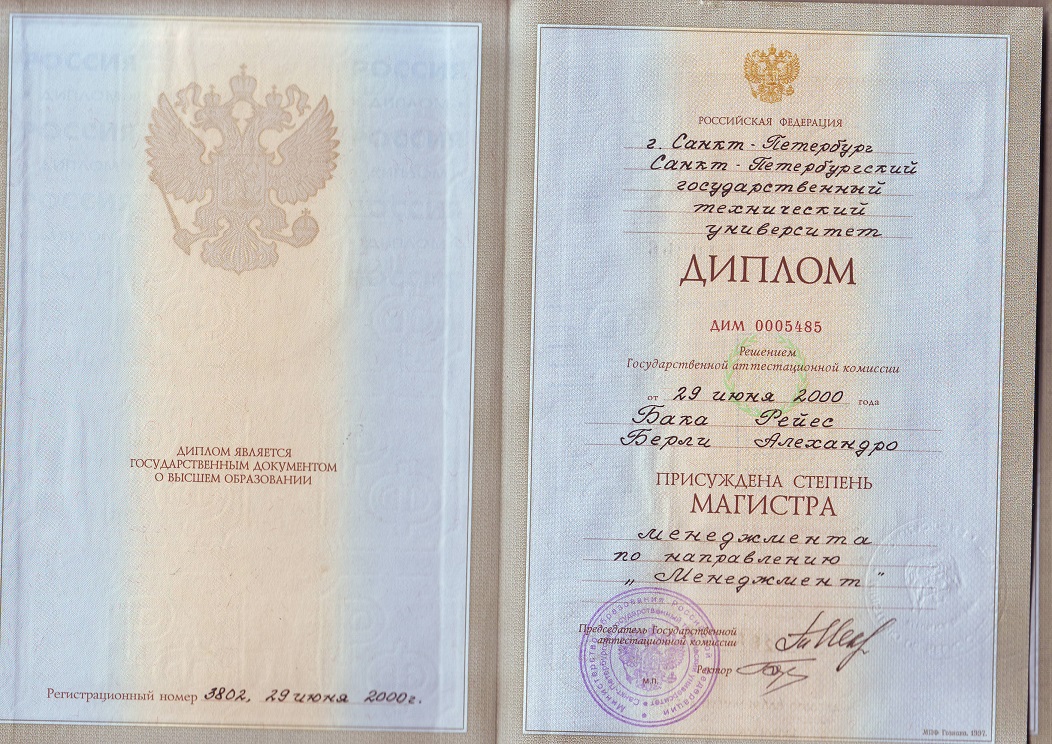 ДИПЛОМ ЯВЛЯЕТСЯ
ГОСУДАРСТВЕННЫМ ДОКУМЕНТОМ
О ВЫСШЕМ ОБРАЗОВАНИИ
Регистрационный номер 3802, 29 июня 2000г.
РОССИЙСКАЯ ФЕДЕРАЦИЯ
г. Санкт-Петербург
Санкт-Петербургский
государственный
технический
университет
ДИПЛОМ
ДИМ 0005485
Решением
Государственной аттестационной комиссии
от 29 июня 2000 года
Бака Рейес
Берли Алехандро
ПРИСУЖДЕНА СТЕПЕНЬ
МАГИСТРА
менеджмента
по направлению
„Менеджмент"
Председатель Государственной
аттестационной комиссии
Ректор
М.П.
МПФ Гознака. 1997.